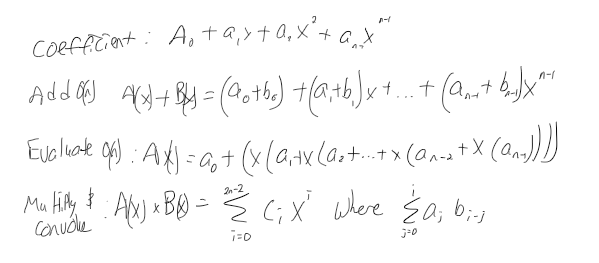 Coefficient : A₀ + a₁x + a₂x² + aₙ₋₁xⁿ⁻¹
Add O(n) A(x) + B(x) = (a₀+b₀) + (a₁+b₁)x + ... + (aₙ₋₁ + bₙ₋₁)xⁿ⁻¹
Evaluate O(n) : A(x) = a₀ + (x(a₁+x(a₂+...+x(aₙ₋₂+x(aₙ₋₁))))
Multiply & : A(x) × B(x) = Σ_{i=0}^{2n-2} Cᵢ xⁱ where Σ_{j=0}^{i} aⱼ bᵢ₋ⱼ
convolve